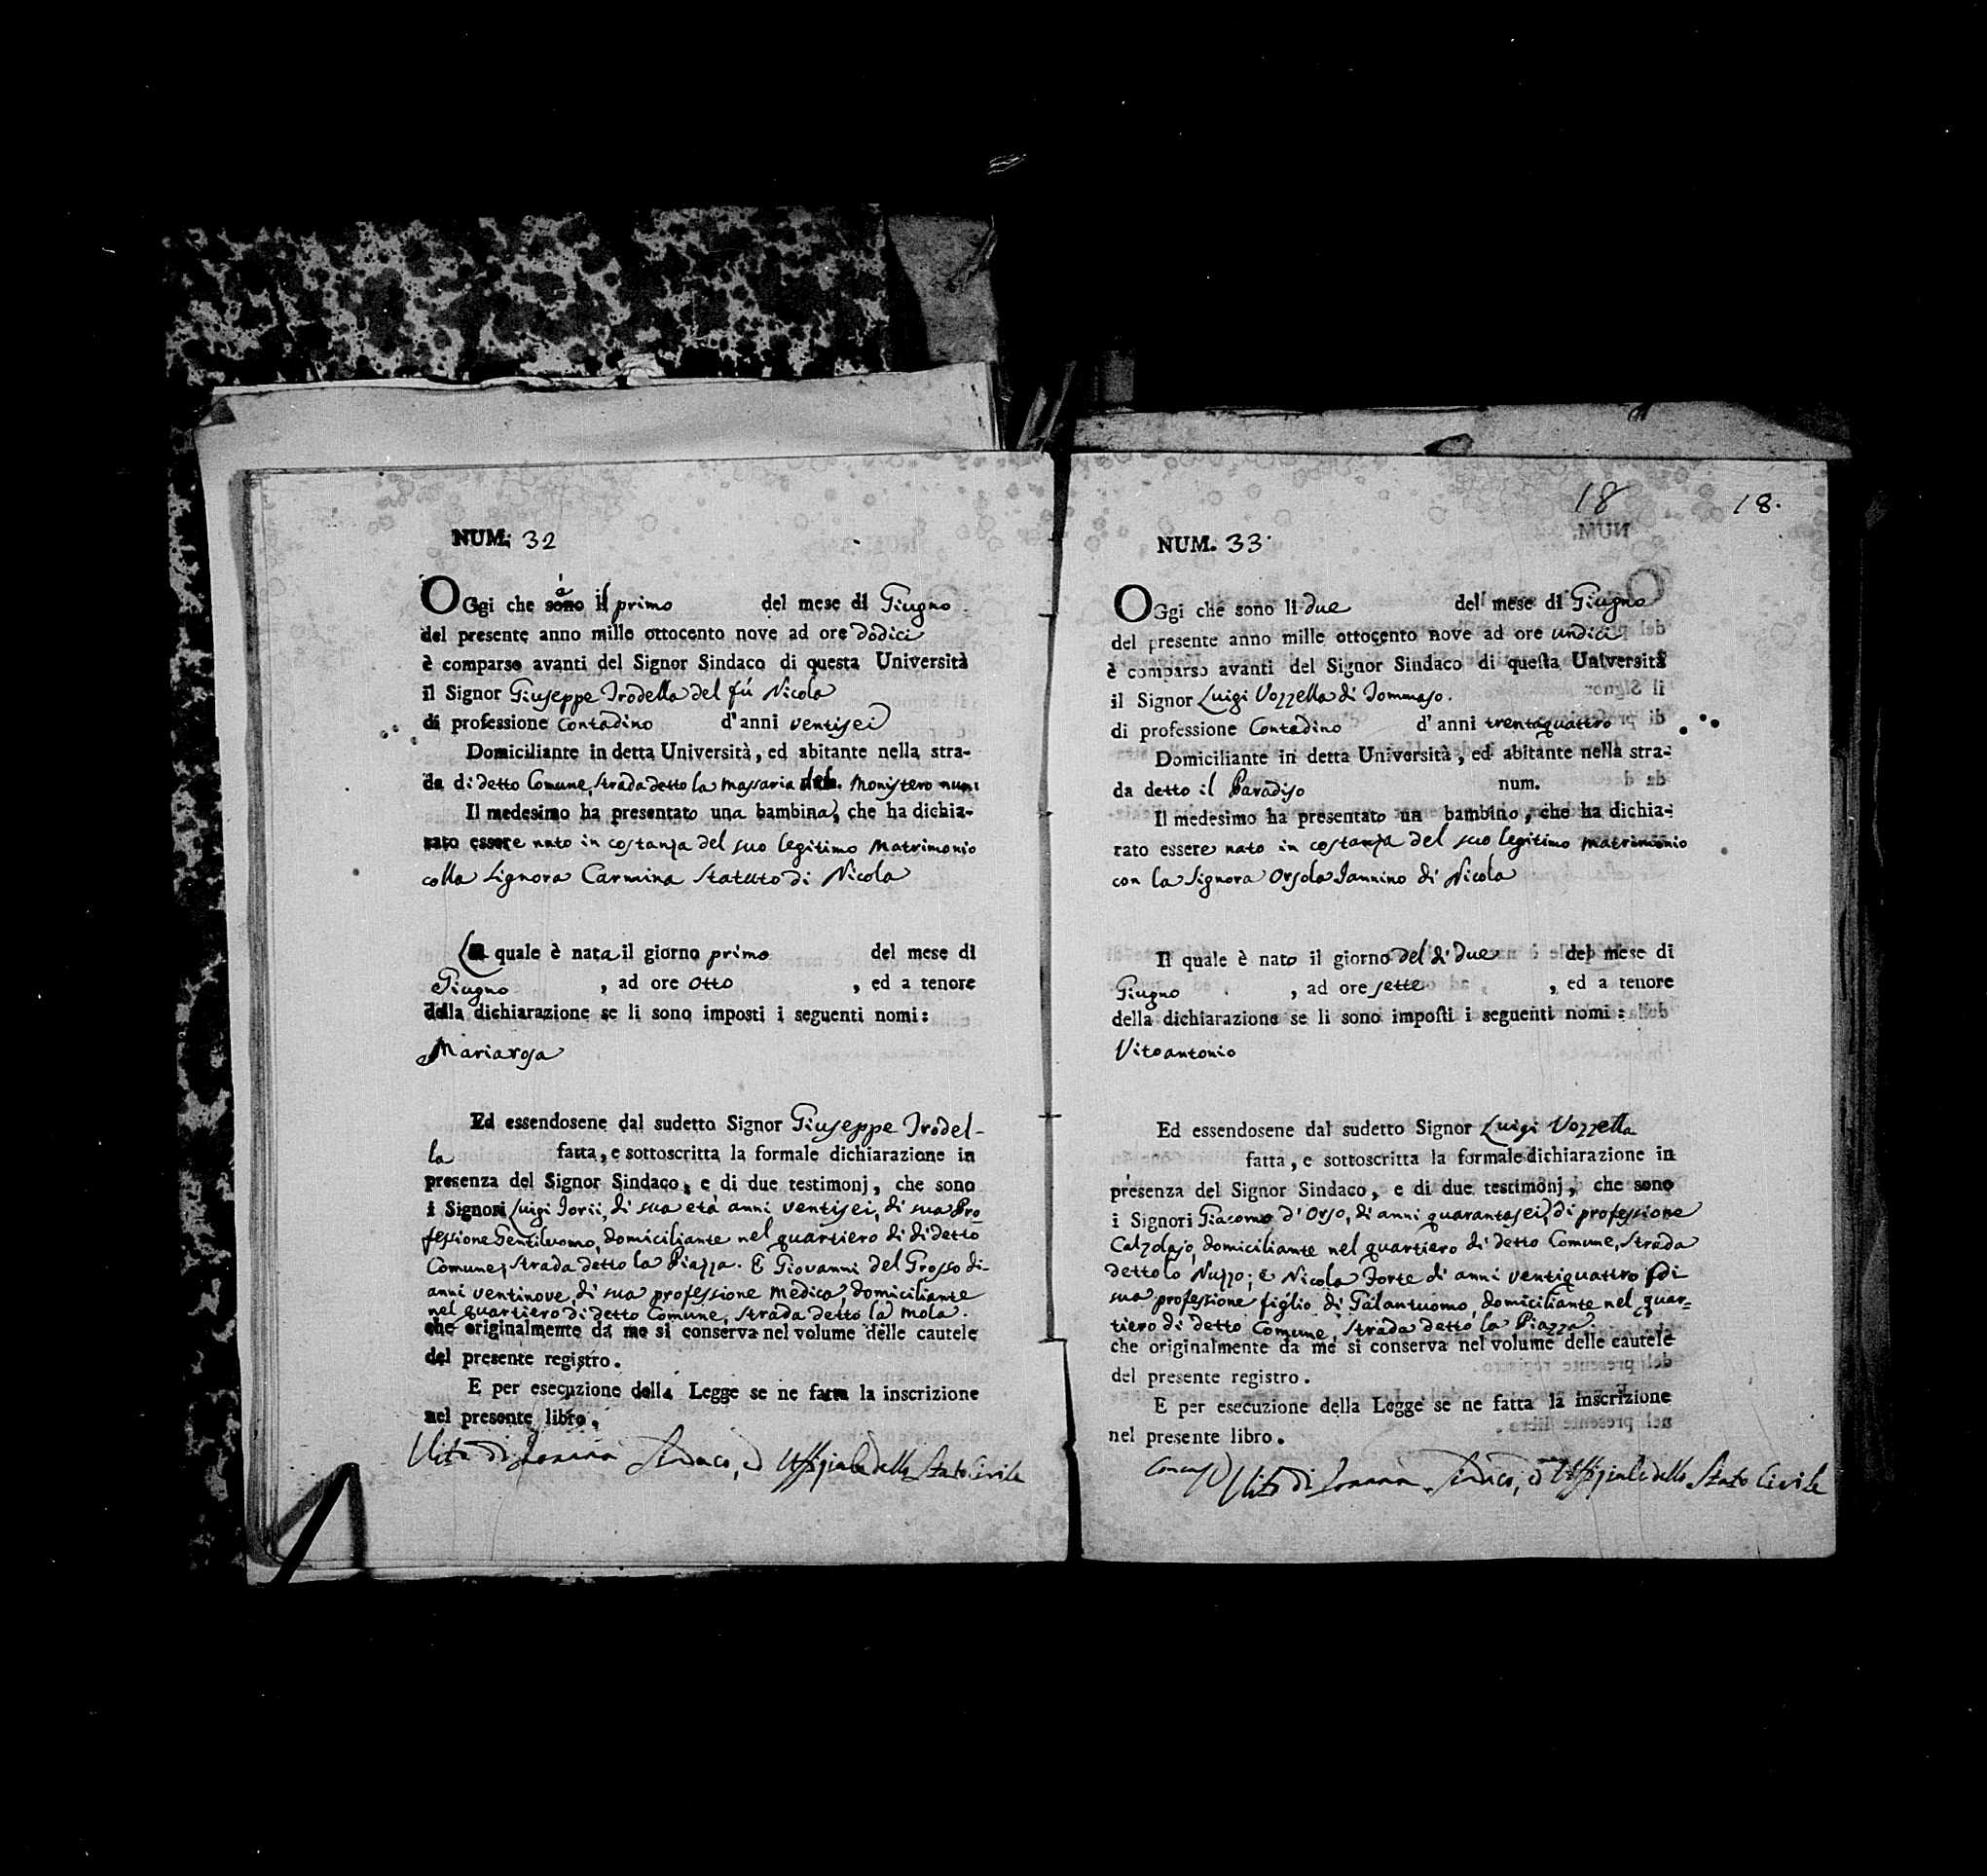 NUM. 32
OGgi che è il primo del mese di Giugno
del presente anno mille ottocento nove ad ore dodici
è comparso avanti del Signor Sindaco di questa Università
il Signor Giuseppe Trodella del fú Nicola
di professione Contadino d'anni ventisei
Domiciliante in detta Università, ed abitante nella stra-
da di detto Comune, strada detto la Massaria del Monistero num:
Il medesimo ha presentato una bambina, che ha dichia-
rato essere nato in costanza del suo legitimo Matrimonio
colla Signora Carmina Statuto di Nicola
La quale è nata il giorno primo del mese di
Giugno, ad ore otto, ed a tenore
della dichiarazione se li sono imposti i seguenti nomi:
Mariarosa
Ed essendosene dal sudetto Signor Giuseppe Trodel-
la fatta, e sottoscritta la formale dichiarazione in
presenza del Signor Sindaco, e di due testimonj, che sono
i Signori Luigi Torii, di sua età anni ventisei, di sua Pro-
fessione Gentiluomo, domiciliante nel quartiero di di detto
Comune, strada detto la Piazza. E Giovanni del Grosso di-
anni ventinove, di sua professione Medica, domiciliante
nel quartiero di detto Comune, strada detto la Mola.
che originalmente da me si conserva nel volume delle cautele
del presente registro.
E per esecuzione della Legge se ne fatta la inscrizione
nel presente libro.
Vito di Sindaco, ed Uffiziale dello Stato Civile
18 18.
NUM. 33
OGgi che sono li due del mese di Giugno
del presente anno mille ottocento nove ad ore undici
è comparso avanti del Signor Sindaco di questa Università
il Signor Luigi Vozzella di Tommaso.
di professione Contadino d'anni trentaquattro
Domiciliante in detta Università, ed abitante nella stra-
da detto il Paradiso num.
Il medesimo ha presentato un bambino, che ha dichia-
rato essere nato in costanza del suo legitimo matrimonio
con la Signora Orsola Iannino di Nicola
Il quale è nato il giorno del dì due del mese di
Giugno, ad ore sette, ed a tenore
della dichiarazione se li sono imposti i seguenti nomi:
Vitoantonio
Ed essendosene dal sudetto Signor Luigi Vozzella
fatta, e sottoscritta la formale dichiarazione in
presenza del Signor Sindaco, e di due testimonj, che sono
i Signori Giacomo d'Orso, di anni quarantasei, di professione
Calzolajo, domiciliante nel quartiero di detto Comune, strada
detto lo Nuzzo; e Nicola Forte di anni ventiquattro di
sua professione figlio di Galantuomo, domiciliante nel quar=
tiero di detto Comune, strada detto la Piazza.
che originalmente da me si conserva nel volume delle cautele
del presente registro.
E per esecuzione della Legge se ne fatta la inscrizione
nel presente libro.
Vito di Sindaco, ed Uffiziale dello Stato Civile